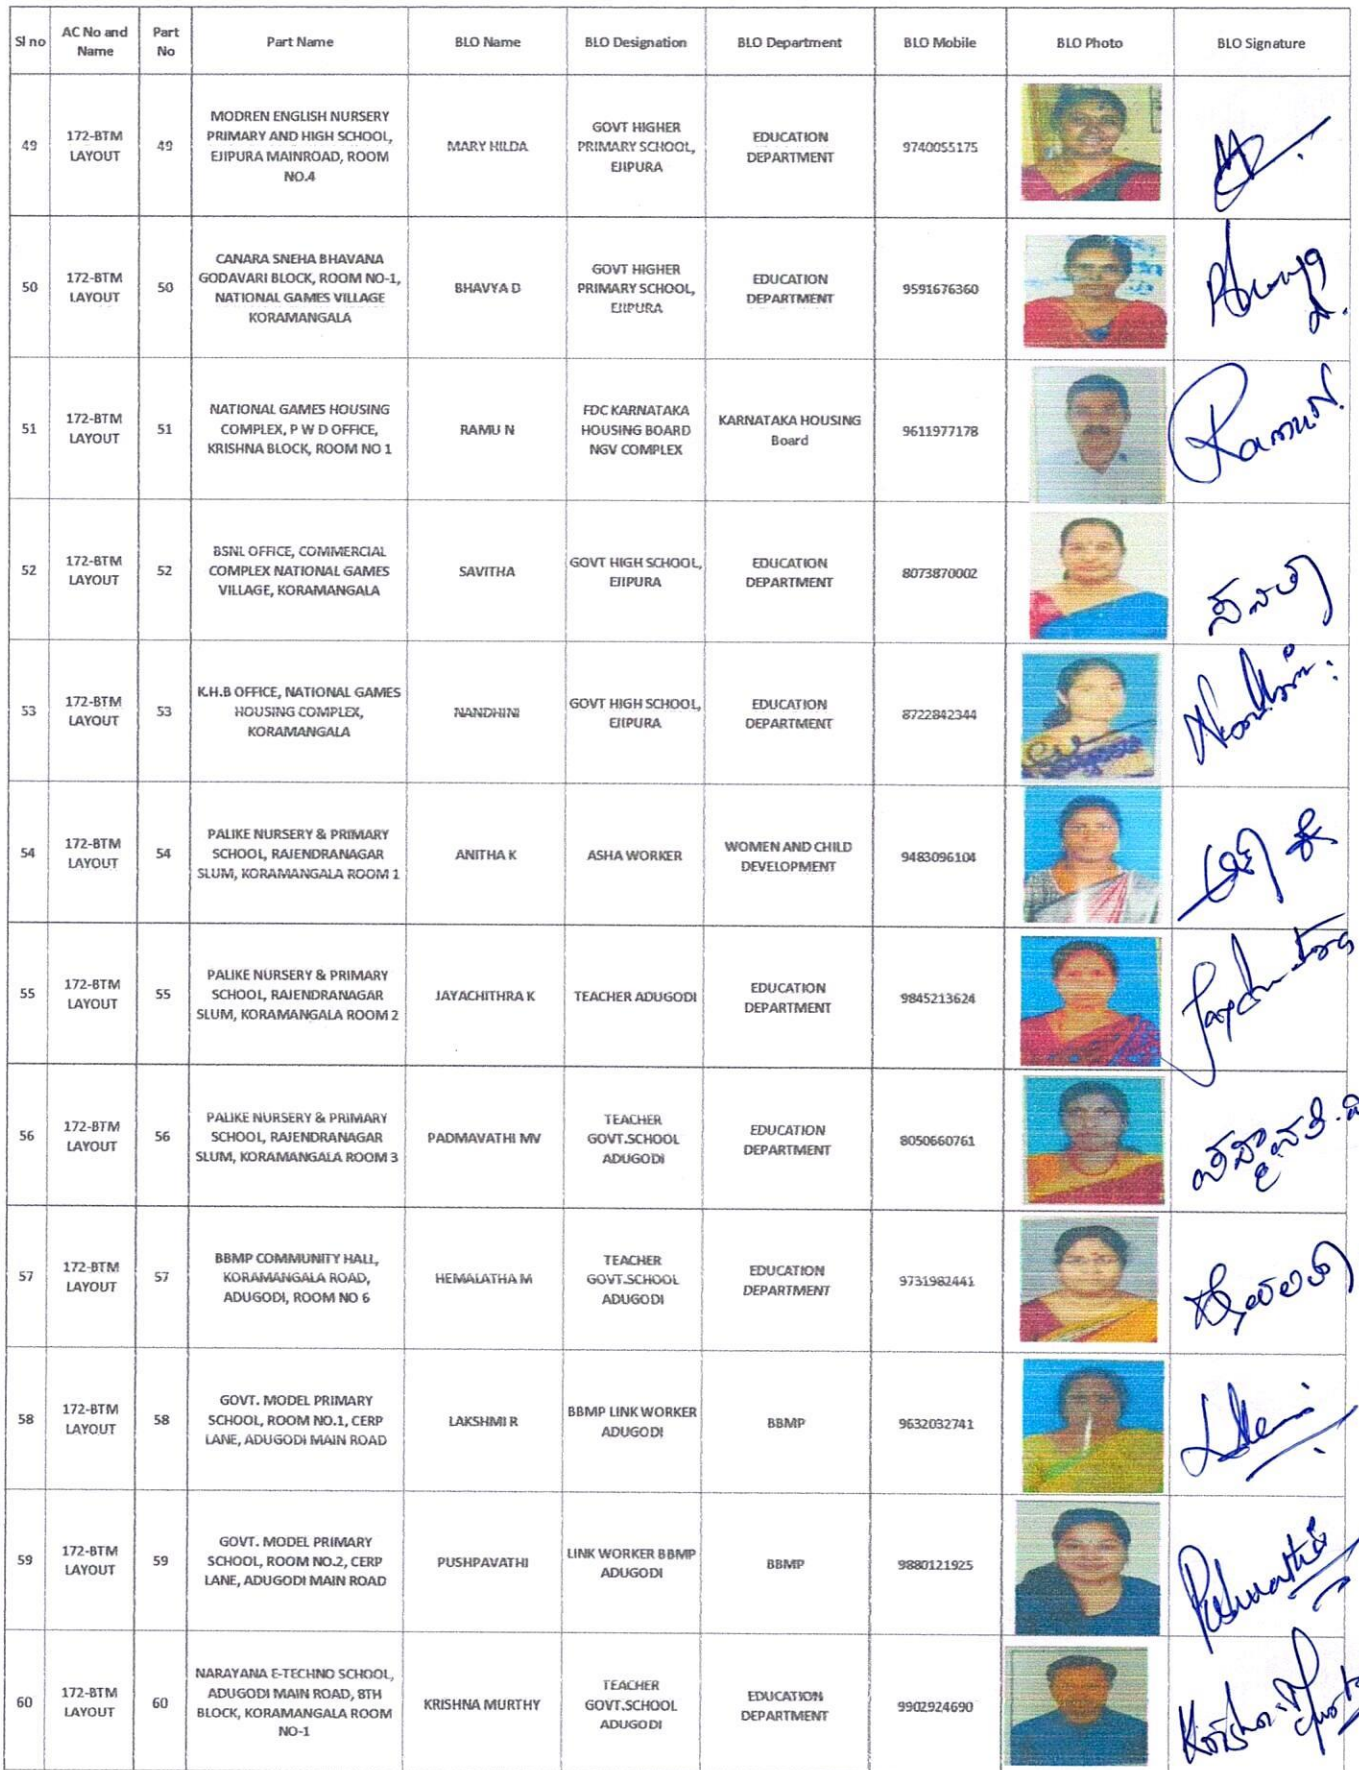 Sl no	AC No and Name	Part No	Part Name	BLO Name	BLO Designation	BLO Department	BLO Mobile	BLO Photo	BLO Signature
49	172-BTM LAYOUT	49	MODREN ENGLISH NURSERY PRIMARY AND HIGH SCHOOL, EJIPURA MAINROAD, ROOM NO.4	MARY HILDA	GOVT HIGHER PRIMARY SCHOOL, EJIPURA	EDUCATION DEPARTMENT	9740055175
50	172-BTM LAYOUT	50	CANARA SNEHA BHAVANA GODAVARI BLOCK, ROOM NO-1, NATIONAL GAMES VILLAGE KORAMANGALA	BHAVYA D	GOVT HIGHER PRIMARY SCHOOL, EJIPURA	EDUCATION DEPARTMENT	9591676360
51	172-BTM LAYOUT	51	NATIONAL GAMES HOUSING COMPLEX, P W D OFFICE, KRISHNA BLOCK, ROOM NO 1	RAMU N	FDC KARNATAKA HOUSING BOARD NGV COMPLEX	KARNATAKA HOUSING Board	9611977178	Ramu.N.
52	172-BTM LAYOUT	52	BSNL OFFICE, COMMERCIAL COMPLEX NATIONAL GAMES VILLAGE, KORAMANGALA	SAVITHA	GOVT HIGH SCHOOL, EJIPURA	EDUCATION DEPARTMENT	8073870002
53	172-BTM LAYOUT	53	K.H.B OFFICE, NATIONAL GAMES HOUSING COMPLEX, KORAMANGALA	NANDHINI	GOVT HIGH SCHOOL, EJIPURA	EDUCATION DEPARTMENT	8722842344
54	172-BTM LAYOUT	54	PALIKE NURSERY & PRIMARY SCHOOL, RAJENDRANAGAR SLUM, KORAMANGALA ROOM 1	ANITHA K	ASHA WORKER	WOMEN AND CHILD DEVELOPMENT	9483096104
55	172-BTM LAYOUT	55	PALIKE NURSERY & PRIMARY SCHOOL, RAJENDRANAGAR SLUM, KORAMANGALA ROOM 2	JAYACHITHRA K	TEACHER ADUGODI	EDUCATION DEPARTMENT	9845213624
56	172-BTM LAYOUT	56	PALIKE NURSERY & PRIMARY SCHOOL, RAJENDRANAGAR SLUM, KORAMANGALA ROOM 3	PADMAVATHI MV	TEACHER GOVT.SCHOOL ADUGODI	EDUCATION DEPARTMENT	8050660761
57	172-BTM LAYOUT	57	BBMP COMMUNITY HALL, KORAMANGALA ROAD, ADUGODI, ROOM NO 6	HEMALATHA M	TEACHER GOVT.SCHOOL ADUGODI	EDUCATION DEPARTMENT	9731982441
58	172-BTM LAYOUT	58	GOVT. MODEL PRIMARY SCHOOL, ROOM NO.1, CERP LANE, ADUGODI MAIN ROAD	LAKSHMI R	BBMP LINK WORKER ADUGODI	BBMP	9632032741
59	172-BTM LAYOUT	59	GOVT. MODEL PRIMARY SCHOOL, ROOM NO.2, CERP LANE, ADUGODI MAIN ROAD	PUSHPAVATHI	LINK WORKER BBMP ADUGODI	BBMP	9880121925
60	172-BTM LAYOUT	60	NARAYANA E-TECHNO SCHOOL, ADUGODI MAIN ROAD, 8TH BLOCK, KORAMANGALA ROOM NO-1	KRISHNA MURTHY	TEACHER GOVT.SCHOOL ADUGODI	EDUCATION DEPARTMENT	9902924690